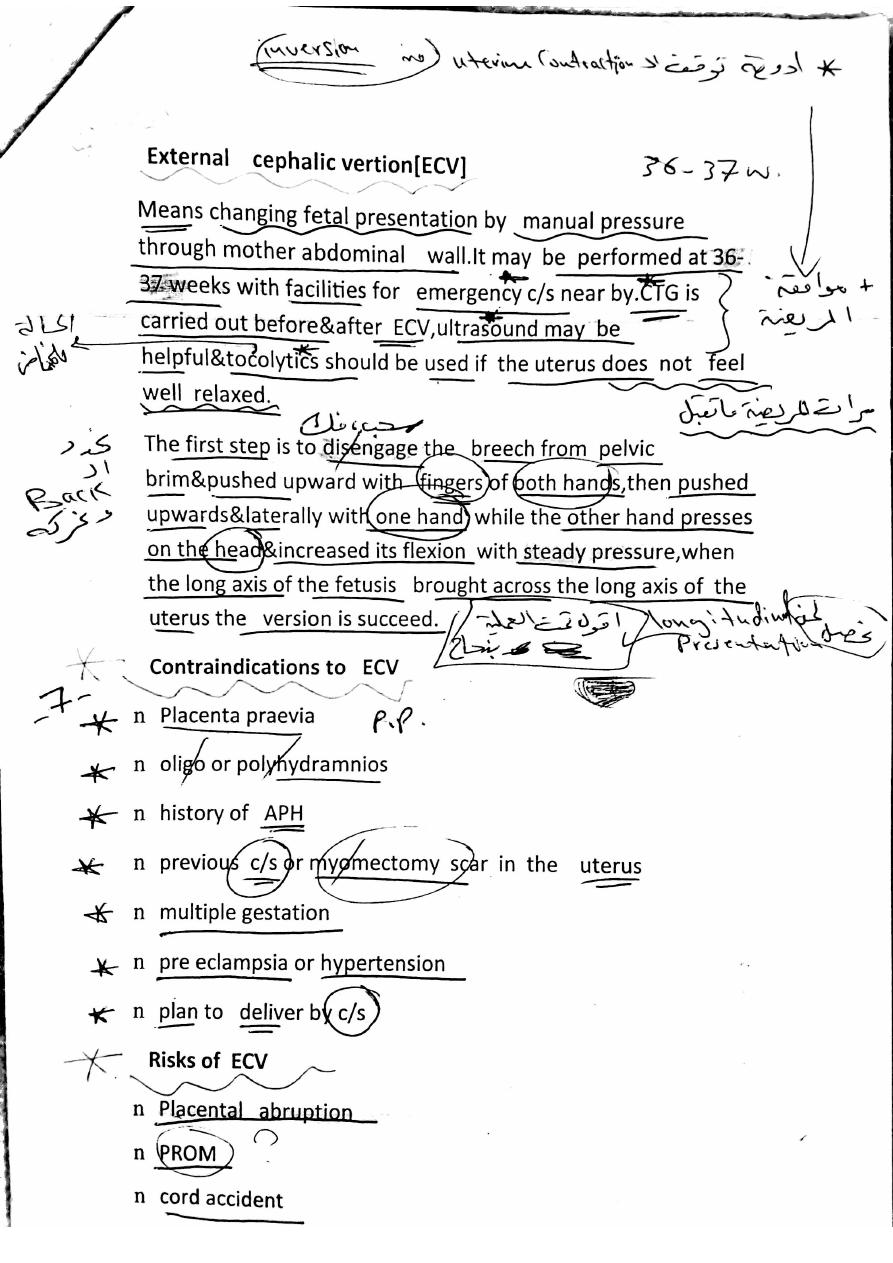 * ادوية توقف ال uterine contraction (no inversion)
External cephalic vertion[ECV]
36-37 w.
Means changing fetal presentation by manual pressure
through mother abdominal wall.It may be performed at 36-
37 weeks with facilities for emergency c/s near by.CTG is
+ موافقة
المريضة
carried out before&after ECV,ultrasound may be
helpful&tocolytics should be used if the uterus does not feel
well relaxed.
مرات المريضة ماتقبل
The first step is to disengage the breech from pelvic
brim&pushed upward with fingers of both hands,then pushed
ال
Back
upwards&laterally with one hand while the other hand presses
on the head&increased its flexion with steady pressure,when
the long axis of the fetusis brought across the long axis of the
uterus the version is succeed.
اقول تمت العملية
بنجاح
longitudinal
Presentation
Contraindications to ECV
-7-
* n Placenta praevia P.P.
* n oligo or polyhydramnios
* n history of APH
* n previous c/s or myomectomy scar in the uterus
* n multiple gestation
* n pre eclampsia or hypertension
* n plan to deliver by c/s
* Risks of ECV
n Placental abruption
n PROM ?
n cord accident